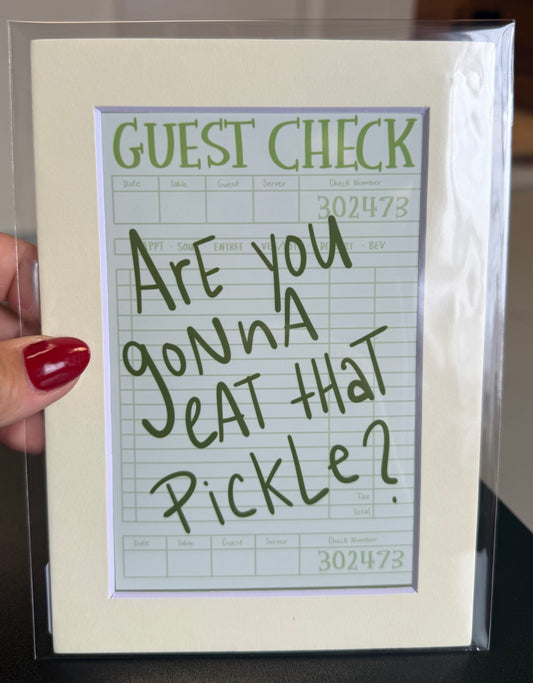 GUEST CHECK
Date Table Guest Server Check Number
302473
APPT · SOU ENTREE BEV
ArE you
goNnA
eAT tHaT
PickLe?
Tax
Total
Date Table Guest Server Check Number
302473